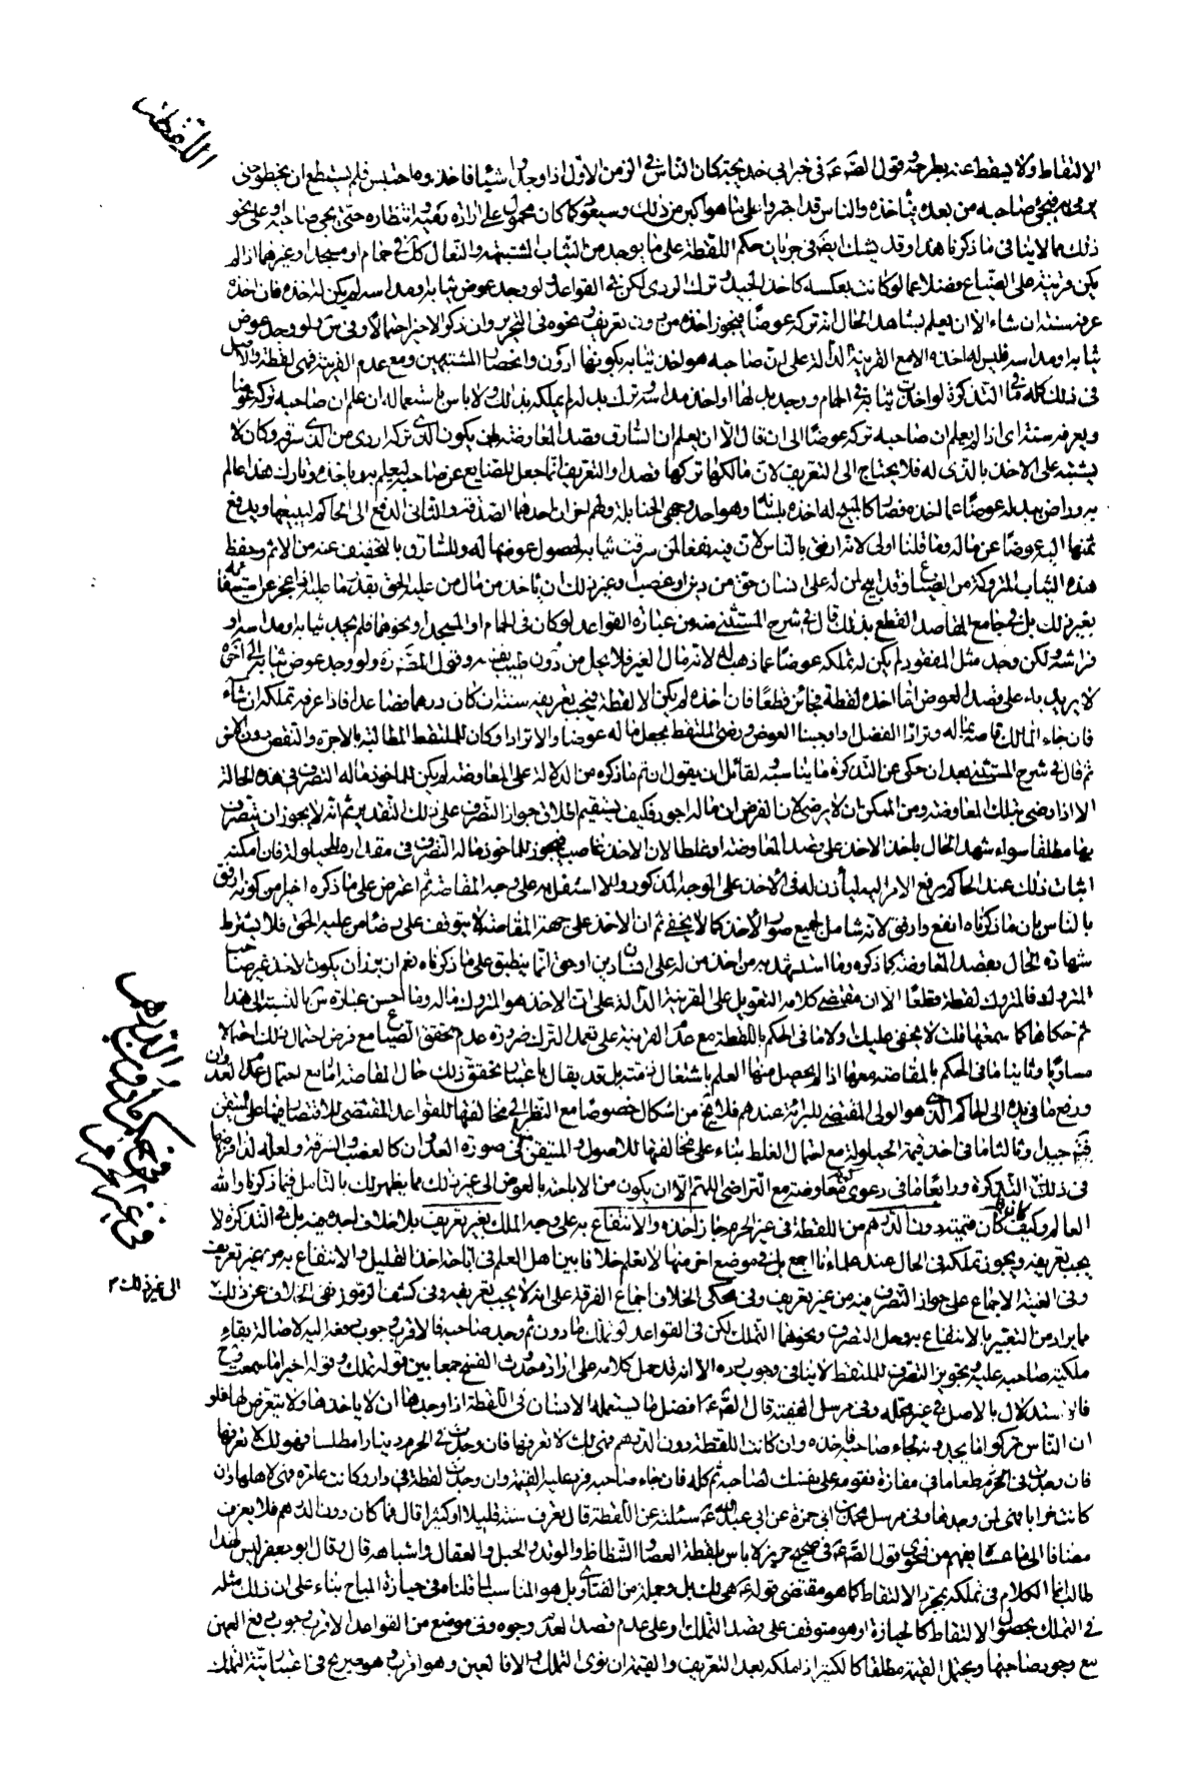 اللقطة
الالتقاط ولا يسقط عنه بطرحه وقول الصّٰ عَ في خبر ابي خديجة كان الناس في الزمن الاول اذا وجدوا شيئا فاخذوه احتبس فلم يستطع ان يخطو حتى
يرمى به فيجئ صاحبه من بعده فياخذه والناس قد اجتروا على ما هو اكبر من ذلك وسيعود كما كان محمول على ارادة تعريفه وانتظاره حتى يجئ صاحبه او على نحو
ذلك مما لا ينافى ما ذكرنا هذا وقد يشك ايضا في جريان حكم اللقطة على ما يوجد من الثياب المشتبهة والنعال كل في حمام او مسجد او غيرهما اذا لم
يكن قرينة على الضياع فضلا عما لو كانت بعكسه كاخذ الجيد وترك الردى لكن في القواعد لو وجد عوض ثيابه او مداسه لم يكن له اخذه فان اخذه
عرفه سنة ان شاء الا ان يعلم بشاهد الحال انه تركه عوضا فيجوز اخذه من دون تعريف ونحوه في التحرير وان ذكر الاخير احتمالا وفى س ولو وجد عوض
ثيابه او مداسه فليس له اخذه الا مع القرينة الدالة على ان صاحبه هو اخذ ثيابه بكونها ادون وانحصار المشتبهين ومع عدم القرينة فهى لقطة والاصل
في ذلك كله ما في التذكرة لو اخذت ثيابه في الحمام ووجد بدلها او اخذ مداسه وترك بدله لم يملكه بذلك ولا باس باستعماله ان علم ان صاحبه تركه عوضا
ويعرفه سنة اى اذا لم يعلم ان صاحبه تركه عوضا الى ان قال الا ان يعلم ان السارق قصد المعاوضة بان يكون الذى تركه اردى من الذى سرقه وكان لا
يشتبه على الاخذ بالذى له فلا يحتاج الى التعريف لان مالكها تركها قصدا والتعريف انما جعل للضايع عن صاحبه ليعلم به وياخذه وتارك هذا عالم
به وراض ببدله عوضا عما اخذه فصار كالمبيح له اخذه بلسانه وهو احد وجهى الحنابلة ولهم اخران احدهما الصدقة والثانى الدفع الى الحاكم ليبيعها ويدفع
ثمنها اليه عوضا عن ماله وما قلنا اولى لانه ارفق بالناس لان فيه نفعا لمن سرقت ثيابه لحصول عوضها له وللسارق بالتخفيف عنه من الاثم وحفظ
هذه الثياب المتروكة من الضياع وقد ابيح لمن له على انسان حق من دين او غصب وغير ذلك ان ياخذ من مال من عليه الحق بقدر ما عليه اذا عجز عن استيفائه
بغير ذلك بل في جامع المقاصد القطع بذلك قال في شرح المستثنى منه من عبارة القواعد لو كان في الحمام او المسجد او نحوهما فلم يجد ثيابه او مداسه او
فراشه ولكن وجد مثل المفقود لم يكن له تملكه عوضا عما ذهب له لانه مال الغير فلا يحل من دون طيب نفسه وقول المصّ رَه ولو وجد عوض ثيابه الى اخره
لا يريد به على قصد العوض انما اخذه لقطة فجائز قطعا فان اخذه لم يكن الا لقطة فيجب تعريفه سنة ان كان درهما فصاعدا فاذا عرفه تملكه ان شاء
فان جاء المالك قاصه بماله وترادا الفضل او اوجبنا العوض ورضى الملتقط بجعل ماله عوضا والا ترادا وكان للملتقط المطالبة بالاجرة والنقص دون الاخر
ثم قال في شرح المستثنى بعد ان حكى عن التذكرة ما يناسبه لقائل ان يقول ان تم ما ذكره من الدلالة على المعاوضة لم يكن للماخوذ ماله التصرف في هذه الحالة
الا اذا رضى بتلك المعاوضة ومن الممكن ان لا يرضى لان الفرض ان ماله اجود فكيف يستقيم اطلاق جواز التصرف على ذلك التقدير ثم انه لا يجوز ان يتصرف
بها مطلقا سواء شهد الحال باخذ الاخذ على قصد المعاوضة او غلطا لان الاخذ غاصب فيجوز للماخوذ ماله التصرف في مقداره للحيلولة فان امكنه
اثبات ذلك عند الحاكم رفع الامر اليه لياذن له في الاخذ على الوجه المذكور والا استقل به على وجه المقاصة ثم اعترض على ما ذكره اخيرا من كونه ارفق
بالناس بان ما ذكرناه انفع وارفق لانه شامل لجميع صور الاخذ كما لا يخفى ثم ان الاخذ على جهة المقاصة لا يتوقف على رضا من عليه الحق فلا يشترط
شهادة الحال بقصد المعاوضة كما ذكره وما استشهد به من اخذ من له على انسان دين او حق انما ينطبق على ما ذكرناه نعم ان يزد ان يكون الاخذ غير صاحب
المتروك فالمتروك لقطة قطعا الا ان مقتضى كلامه التعويل على القرينة الدالة على ان الاخذ هو المتروك ماله وما احسن عبارة س بالنسبة الى هذا
ثم حكاها كما سمعتها قلت لا يخفى عليك اولا ما في الحكم باللقطة مع عدم القرينة على تعمد الترك ضرورة عدم تحقق الضياع مع فرض احتمال ذلك احتمالا
مساويا وثانيا ما في الحكم بالمقاصة ومعها اذا لم يحصل منها العلم باشتغال ذمته بل قد يقال باعتبار تحقق ذلك حال المقاصة اما مع احتمال عدم العدوان
ورفع ما في يده الى الحاكم الذى هو الولى المقتضى للبرائة عندهم فلا يخ من اشكال خصوصا مع النظر الى مخالفتها للقواعد المقتضى للاقتصار فيها على المتيقن
فيه جيدا وثالثا ما في اخذ قيمة الحيلولة مع احتمال الغلط بناء على مخالفتها للاصول والمتيقن في صورة العدوان كالغصب والسرقة ولعله لذا فرضها
في ذلك التذكرة ورابعا ما في دعوى كونه معاوضة مع التراضى اللهم الا ان يكون من الاباحة بالعوض الى غير ذلك مما يظهر لك بالتامل فيما ذكرنا والله
العالم وكيف كان فما كان منه دون الدرهم من اللقطة في غير الحرم جاز اخذه والانتفاع به على وجه الملك بغير تعريف بلا خلاف اجده فيه بل في التذكرة لا
يجب تعريفه ويجوز تملكه في الحال عند علمائنا اجمع بل في موضع اخر منها لا نعلم خلافا بين اهل العلم في اباحة اخذ القليل والانتفاع به من غير تعريف
وفى الغنية الاجماع على جواز التصرف فيه من غير تعريف وفى محكى الخلاف اجماع الفرقة على انه لا يجب تعريفه وفى كشف الرموز نفى الخلاف عن ذلك
مما يراد من التعبير بالانتفاع به وحل التصرف ونحوهما التملك لكن في القواعد لو تملك ما دون ثم وجد صاحبه فالاقرب وجوب دفعه اليه لاصالة بقاء
ملكية صاحبه عليه وتجويز التصرف للملتقط لا ينافى وجوب رده الا انه قد حمل كلامه على ارادة حدث الفسخ جمعا بين قوله تملك وقوله اخيرا ما سمعت وح
فالاستدلال بالاصل في غير محله وفى مرسل الفقيه قال الصّٰ عَ افضل ما يستعمله الانسان في اللقطة اذا وجدها ان لا ياخذها ولا يتعرض لها فلو
ان الناس تركوا ما يجدونه لجاء صاحبه فاخذه وان كانت اللقطة دون الدرهم فهى لك لا تعرفها فان وجدت في الحرم دينارا مطلسا فهو لك لا تعرفها
فان وجدت في الحرم طعاما في مفازة فقومه على نفسك لصاحبه ثم كله فان جاء صاحبه فرد عليه القيمة وان وجدت لقطة في دار وكانت عامرة فهى لاهلها وان
كانت خرابا فهى لمن وجدها وفى مرسل محمد بن ابي حمزة عن ابي عبد الله عَ سئلته عن اللقطة قال تعرف سنة قليلا او كثيرا قال فما كان دون الدرهم فلا يعرف
مضافا الى ما عساه يفهم من فحوى قول الصّٰ عَ في صحيح حريز لا باس بلقطة العصا والشظاظ والوتد والحبل والعقال واشباهه قال وقال ابو جعفر ليس لهذا
طالب انما الكلام في تملكه بمجرد الالتقاط كما هو مقتضى قوله عَ هى لك بل وجملة من الفتاوى بل هو المناسب لما قلنا في حيازة المباح بناء على ان ذلك مثله
في التملك بحصول الالتقاط كالحيازة او هو متوقف على قصد التملك او على عدم قصد العدم وجوه وفى موضع من القواعد الاقرب وجوب دفع العين
مع وجود صاحبها ويحتمل القيمة مطلقا كالكثير اذا ملكه بعد التعريف والقيمة ان نوى التملك والا فالعين وهو اقرب وهو صريح في اعتبار نية التملك
الى غير ذلك